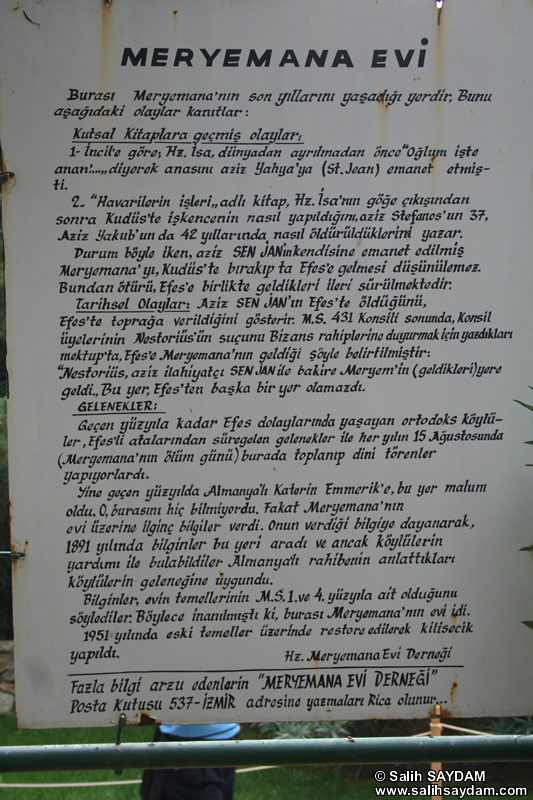 MERYEMANA EVİ
Burası Meryemana'nın son yıllarını yaşadığı yerdir. Bunu
aşağıdaki olaylar kanıtlar:
Kutsal Kitaplara geçmiş olaylar:
1- İncile göre; Hz. İsa, dünyadan ayrılmadan önce "Oğlum işte
anan!....,, diyerek anasını aziz Yahya'ya (St. Jean) emanet etmiş-
ti.
2- "Havarilerin işleri,, adlı kitap, Hz. İsa'nın göğe çıkışından
sonra Kudüs'te işkencenin nasıl yapıldığını, aziz Stefanos'un 37,
Aziz Yakub'un da 42 yıllarında nasıl öldürüldüklerini yazar.
Durum böyle iken, aziz SEN JAN'ın kendisine emanet edilmiş
Meryemana'yı, Kudüs'te bırakıp ta Efes'e gelmesi düşünülemez.
Bundan ötürü, Efes'e birlikte geldikleri ileri sürülmektedir.
Tarihsel Olaylar: Aziz SEN JAN'ın Efes'te öldüğünü,
Efes'te toprağa verildiğini gösterir. M.S. 431 Konsili sonunda, Konsil
üyelerinin Nestoriüs'ün suçunu Bizans rahiplerine duyurmak için yazdıkları
mektup'ta, Efes'e Meryemana'nın geldiği şöyle belirtilmiştir:
"Nestoriüs, aziz ilahiyatçı SEN JAN ile bakire Meryem'in (geldikleri) yere
geldi.,, Bu yer, Efes'ten başka bir yer olamazdı.
GELENEKLER:
Geçen yüzyıla kadar Efes dolaylarında yaşayan ortodoks köylü-
ler, Efes'li atalarından süregelen gelenekler ile her yılın 15 Ağustosunda
(Meryemana'nın ölüm günü) burada toplanıp dini törenler
yapıyorlardı.
Yine geçen yüzyılda Almanya'lı Katerin Emmerik'e, bu yer malum
oldu. O, burasını hiç bilmiyordu. Fakat Meryemana'nın
evi üzerine ilginç bilgiler verdi. Onun verdiği bilgiye dayanarak,
1891 yılında bilginler bu yeri aradı ve ancak köylülerin
yardımı ile bulabildiler Almanya'lı rahibenin anlattıkları
köylülerin geleneğine uygundu.
Bilginler, evin temellerinin M.S. 1. ve 4. yüzyıla ait olduğunu
söylediler. Böylece inanılmıştı ki, burası Meryemana'nın evi idi.
1951 yılında eski temeller üzerinde restore edilerek kilisecik
yapıldı.
Hz. Meryemana Evi Derneği
Fazla bilgi arzu edenlerin "MERYEMANA EVİ DERNEĞİ"
Posta Kutusu 537- İZMİR adresine yazmaları Rica olunur...
© Salih SAYDAM
www.salihsaydam.com